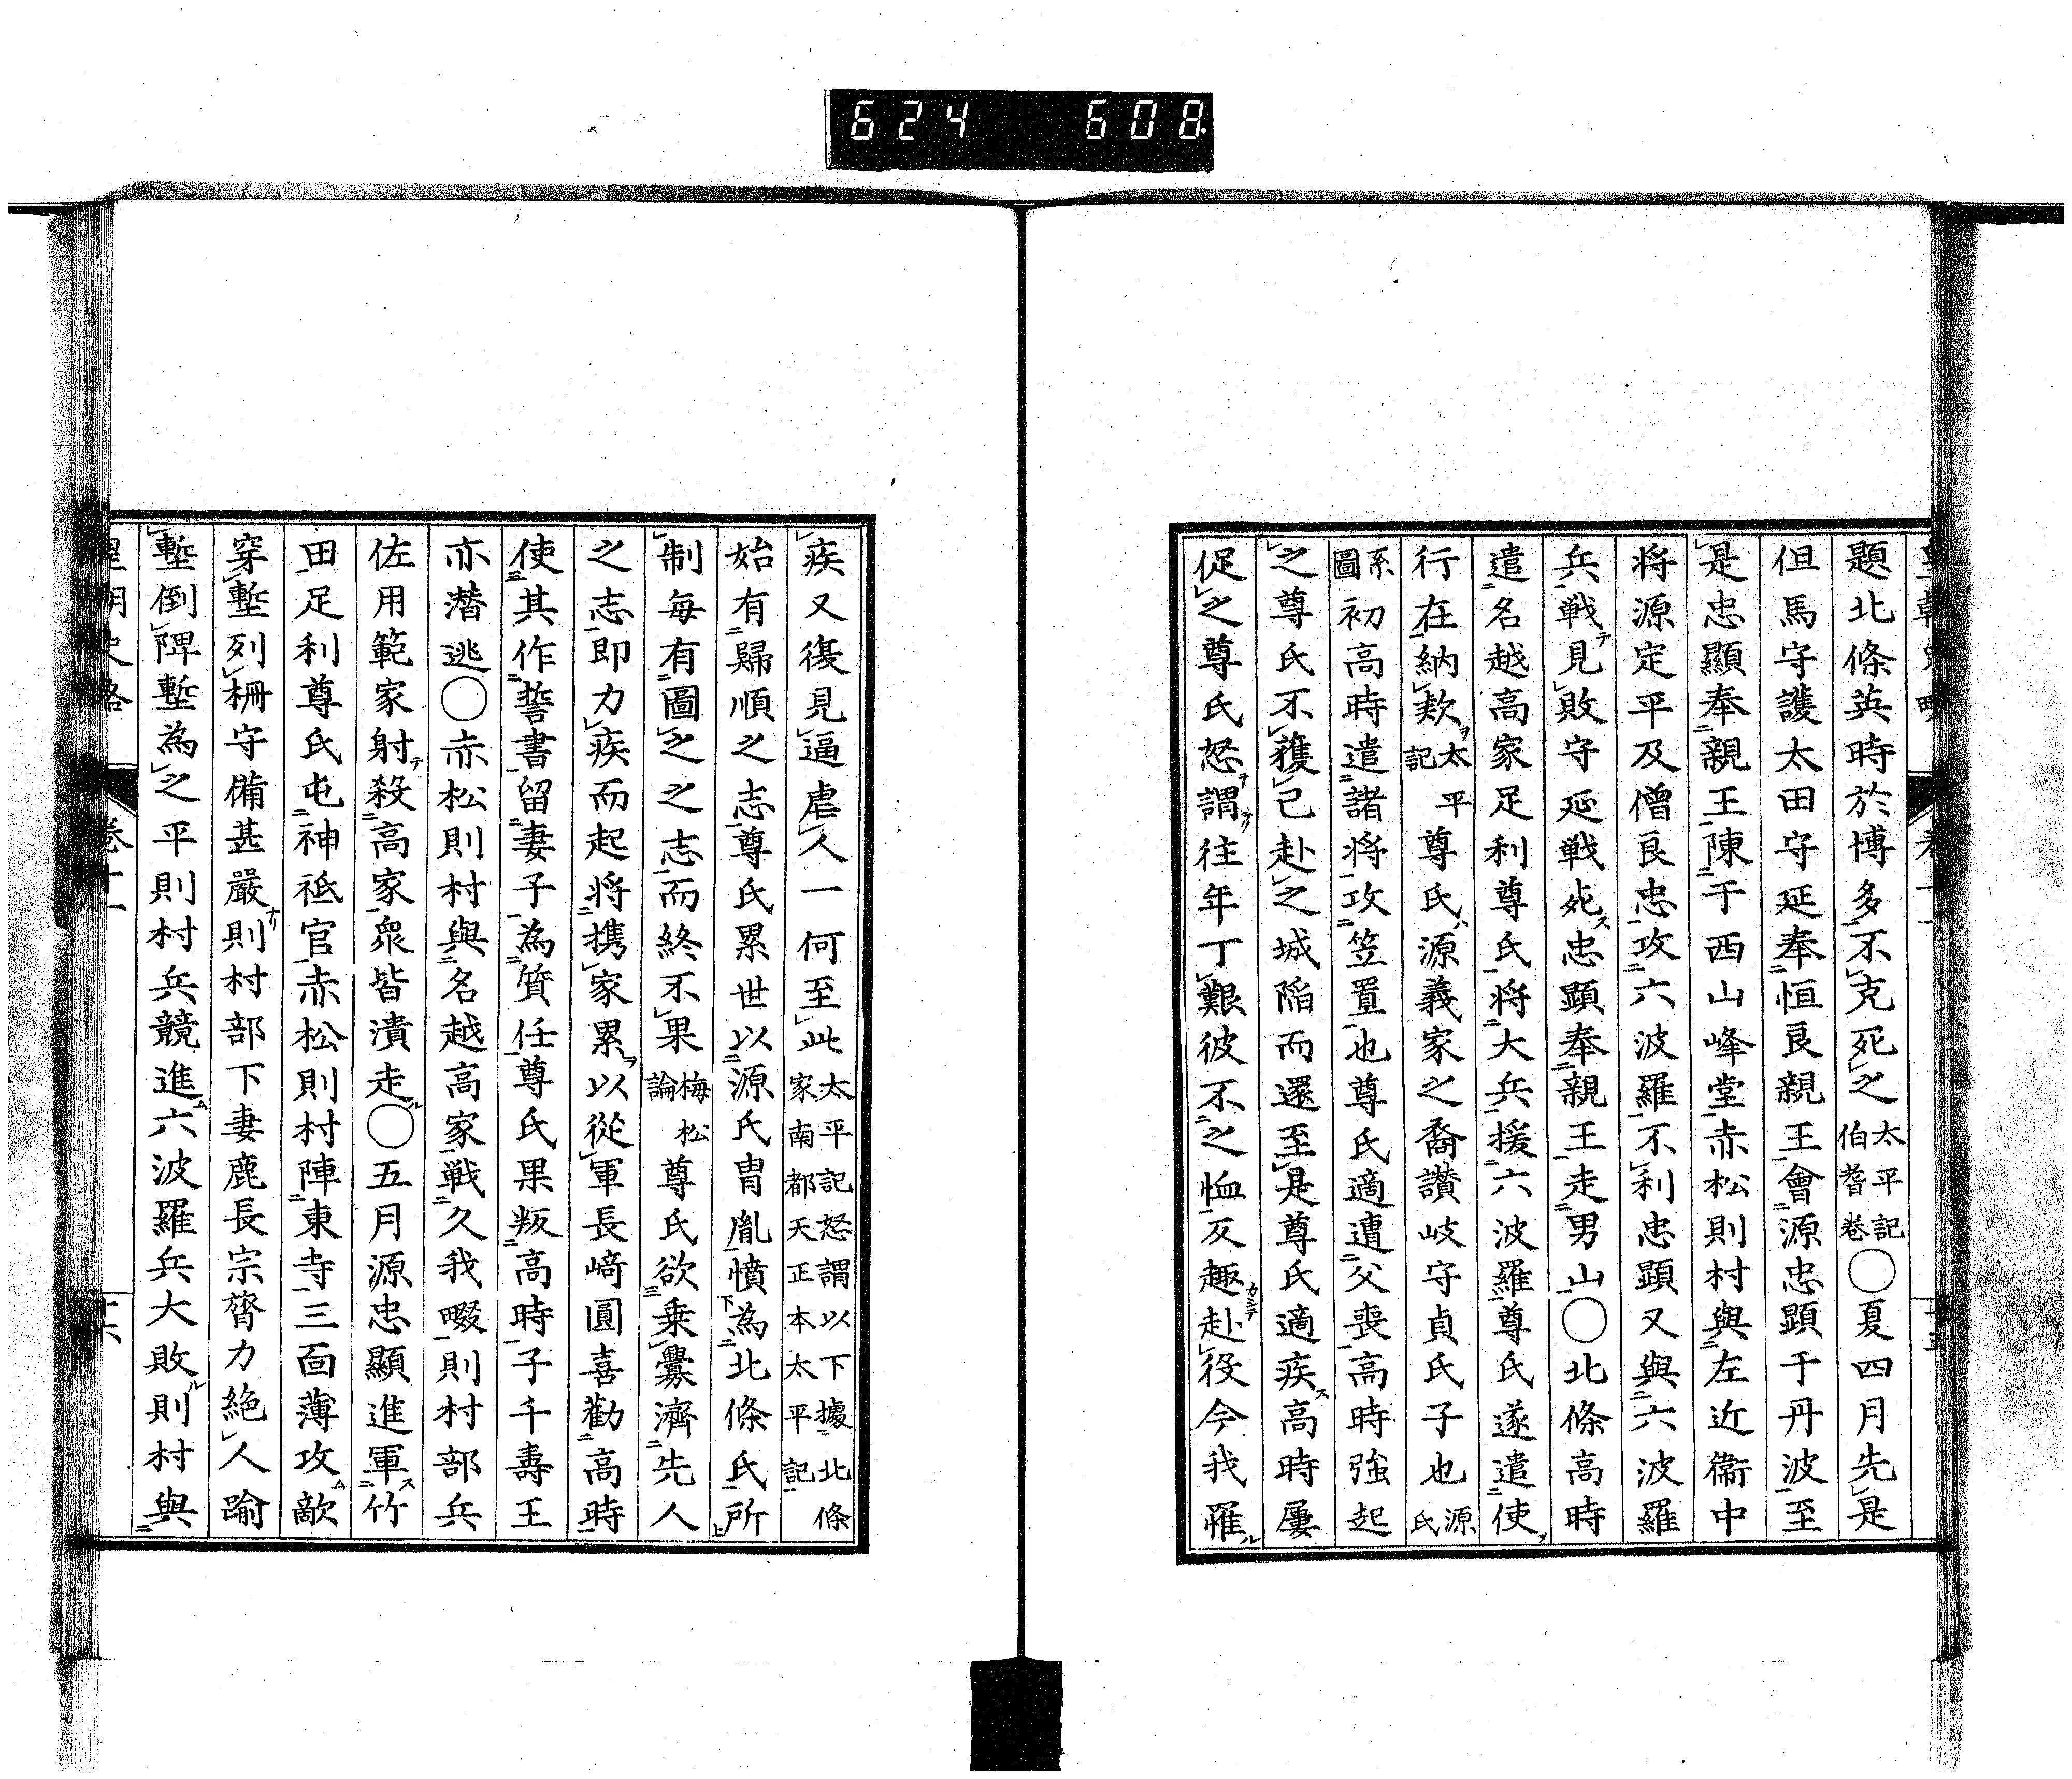 624 608
題北條英時於博多不克死之太平記伯耆卷○夏四月先是
但馬守護太田守延奉恒良親王會源忠顕于丹波至
是忠顯奉親王陳于西山峰堂赤松則村與左近衞中
将源定平及僧良忠攻六波羅不利忠顕又與六波羅
兵戦テ見敗守延戦死ス忠顕奉親王走男山○北條高時
遣名越高家足利尊氏将大兵援六波羅尊氏遂遣使ヲ
行在納欵ヲ太平記尊氏ハ源義家之裔讃岐守貞氏子也源氏
系圖初高時遣諸将攻笠置也尊氏適遭父喪高時強起
之尊氏不獲已赴之城陥而還至是尊氏適疾ス高時屢
促之尊氏怒テ謂ラク往年丁艱彼不之恤反趣カシテ赴役今我罹ル
疾又復見逼虐人一何至此太平記怒謂以下據北條家南都天正本太平記
始有歸順之志尊氏累世以源氏冑胤憤為北條氏所
制每有圖之之志而終不果梅松論尊氏欲乗釁濟先人
之志即力疾而起将携家累ヲ以從軍長﨑圓喜勸高時
使其作誓書留妻子為質任尊氏果叛高時子千壽王
亦潜逃○赤松則村與名越高家戦久我畷則村部兵
佐用範家射テ殺高家衆皆潰走ル○五月源忠顯進軍ス竹
田足利尊氏屯神祇官赤松則村陣東寺三面薄攻ム敵
穿塹列柵守備甚嚴ナリ則村部下妻鹿長宗膂力絶人踰
塹倒陴塹為之平則村兵競進ム六波羅兵大敗ル則村與
卷十一